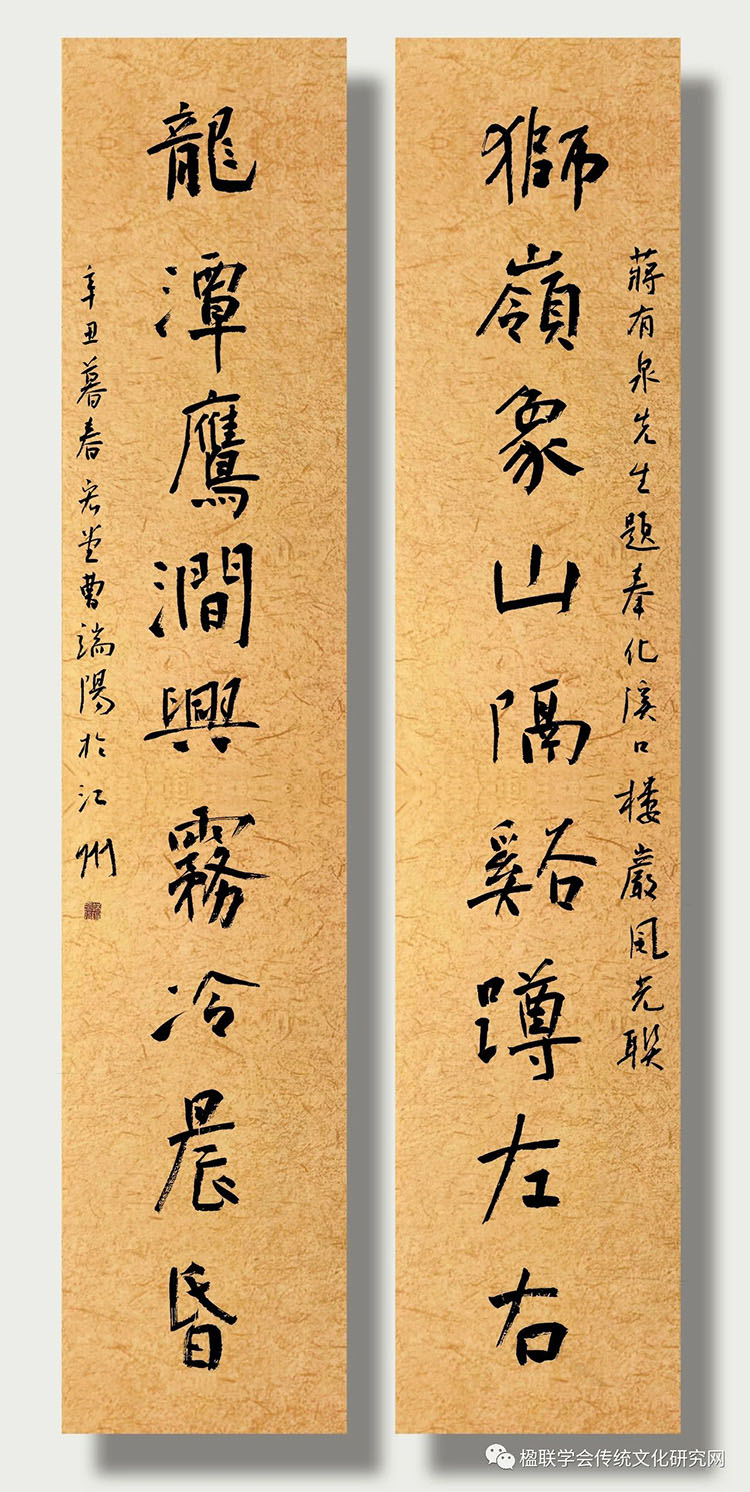 蔣有泉先生題奉化溪口楼巖風光联
獅嶺象山隔谿蹲左右
龍潭鷹澗興霧冷晨昏
辛丑暮春宏堂曹端陽於江州
楹联学会传统文化研究网